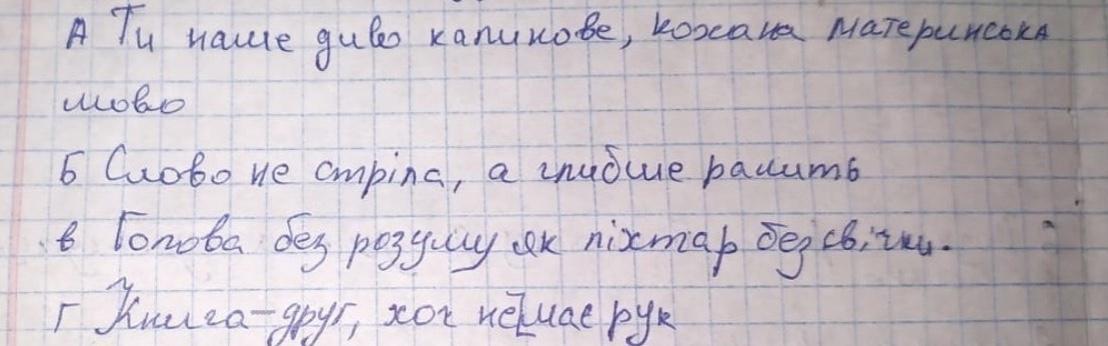 А Ти наше диво калинове, кохана материнська
мово
Б Слово не стріла, а глибше ранить
в Голова без розуму як ліхтар без свічки.
Г Книга-друг, хоч не має рук